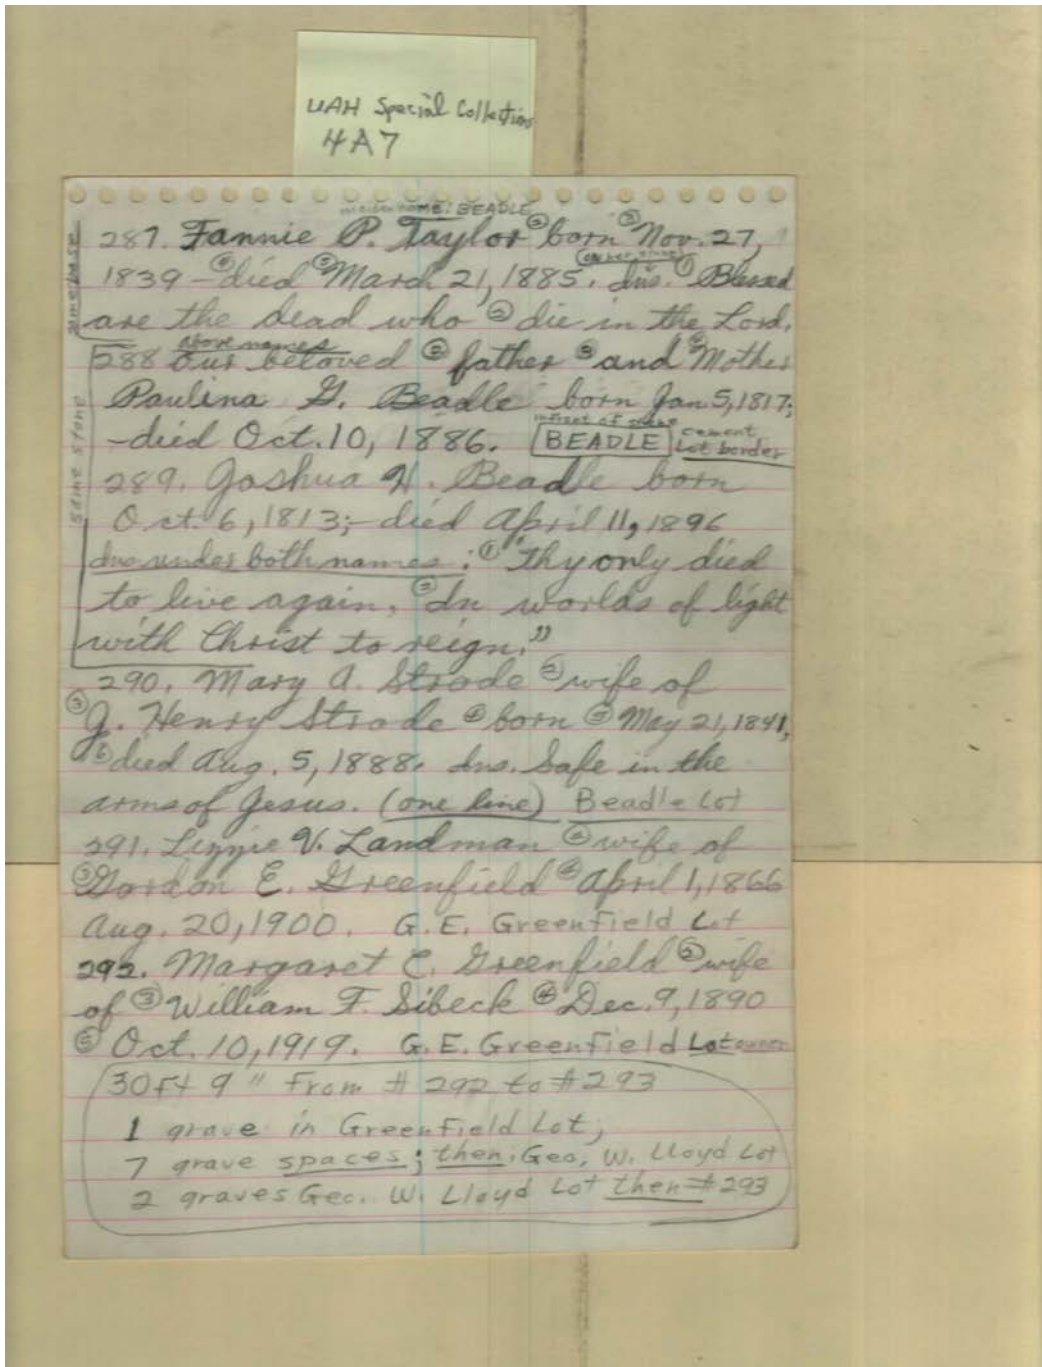 UAH Special Collections
4A7
maiden name: BEADLE
287. Fannie P. Taylor ② born ③ Nov. 27,
1839 – ④ died ⑤ March 21, 1885. Ins. ① Blessed
are the dead who ② die in the Lord.
same base
above names
288 Our beloved ② father ③ and ④ Mother
Paulina G. Beadle born Jan 5, 1817;
infront of stone
-died Oct. 10, 1886. BEADLE cement
Lot border
same stone
289. Joshua H. Beadle born
Oct. 6, 1813; - died April 11, 1896
Ins under both names: ① "Thy only died
to live again, ② In worlds of light
with Christ to reign."
290. Mary A. Strode ② wife of
③ J. Henry Strode ④ born ⑤ May 21, 1841,
⑥ died Aug. 5, 1888. Ins. Safe in the
arms of Jesus. (one line) Beadle Lot
291. Lizzie V. Landman ② wife of
③ Gordon E. Greenfield ④ April 1, 1866
Aug. 20, 1900. G. E. Greenfield Lot
292. Margaret C. Greenfield ② wife
of ③ William F. Sibeck ④ Dec. 9, 1890
⑤ Oct. 10, 1919. G. E. Greenfield Lot owner
30 Ft 9 " From # 292 to # 293
1 grave in Greenfield Lot,
7 grave spaces; then, Geo. W. Lloyd Lot
2 graves Geo. W. Lloyd Lot then # 293